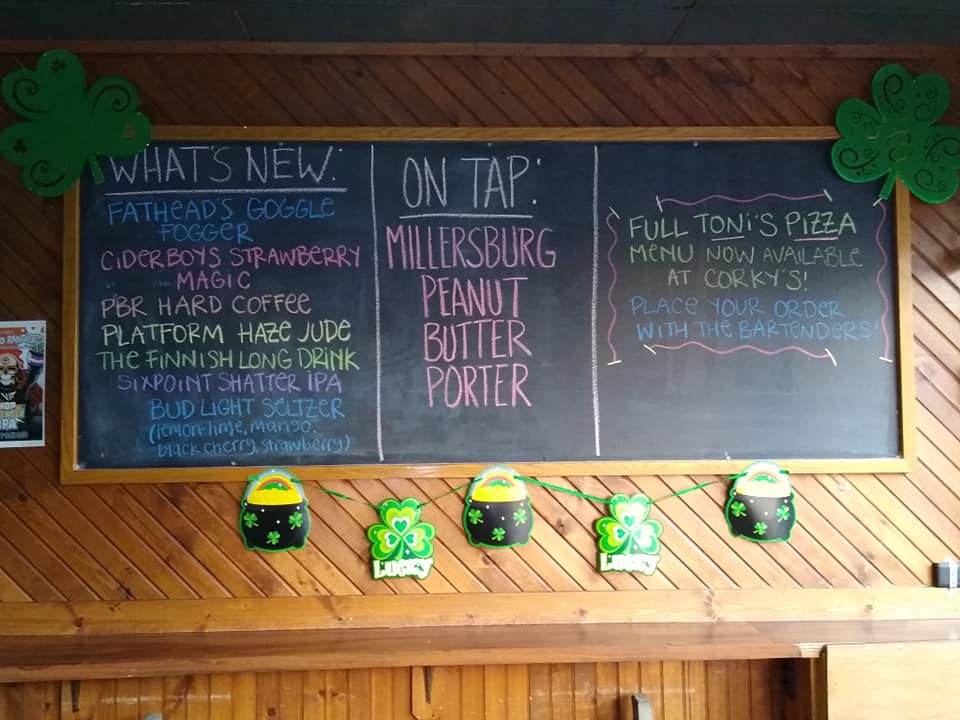 WHAT'S NEW:
FATHEAD'S GOGGLE
FOGGER
CIDERBOYS STRAWBERRY
MAGIC
PBR HARD COFFEE
PLATFORM HAZE JUDE
THE FINNISH LONG DRINK
SIXPOINT SHATTER IPA
BUD LIGHT SELTZER
(lemon-lime, mango,
black cherry, strawberry)
ON TAP:
MILLERSBURG
PEANUT
BUTTER
PORTER
FULL TONI'S PIZZA
MENU NOW AVAILABLE
AT CORKY'S!
PLACE YOUR ORDER
WITH THE BARTENDERS!
Lucky
Lucky
IPA